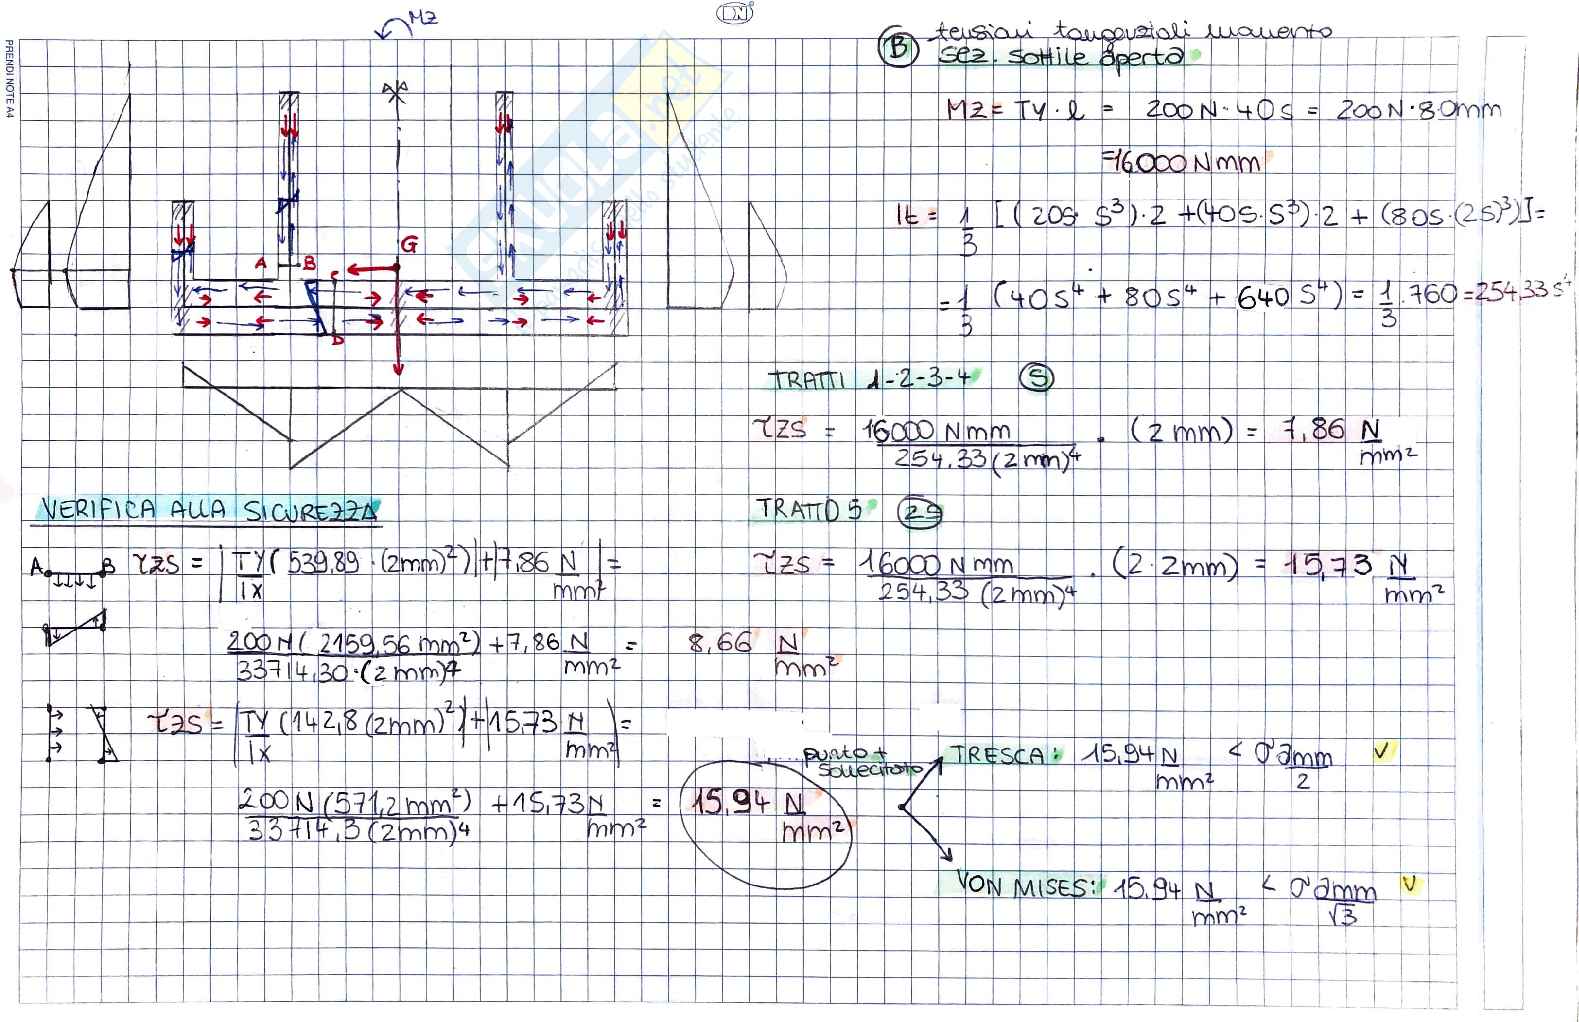 DN
PRENDI NOTE A4
MZ
B tensioni tangenziali momento
sez. sottile aperta
MZ = TY · l = 200 N · 40 s = 200 N · 80 mm
= 16000 N mm
It = 1/3 [(20s · s³) · 2 + (40s · s³) · 2 + (80s · (2s)³)] =
= 1/3 (40s⁴ + 80s⁴ + 640 s⁴) = 1/3 · 760 = 254,33 s⁴
G
A B
C
D
TRATTI 1-2-3-4 S
τzs = 16000 N mm / 254,33 (2 mm)⁴ · (2 mm) = 7,86 N/mm²
TRATTO 5 2S
τzs = 16000 N mm / 254,33 (2 mm)⁴ · (2 · 2mm) = 15,73 N/mm²
VERIFICA ALLA SICUREZZA
A B τzs = |TY/Ix (539,89 · (2mm)²)| + |7,86 N/mm²| =
200 N (2159,56 mm²) / 33714,30 · (2 mm)4 + 7,86 N/mm² = 8,66 N/mm²
τzs = |TY/Ix (142,8 (2mm)²)| + |15,73 N/mm²| =
200 N (571,2 mm²) / 33714,3 (2mm)4 + 15,73 N/mm² = 15,94 N/mm²
punto + sollecitato
TRESCA: 15,94 N/mm² < σamm/2 V
VON MISES: 15,94 N/mm² < σamm/√3 V